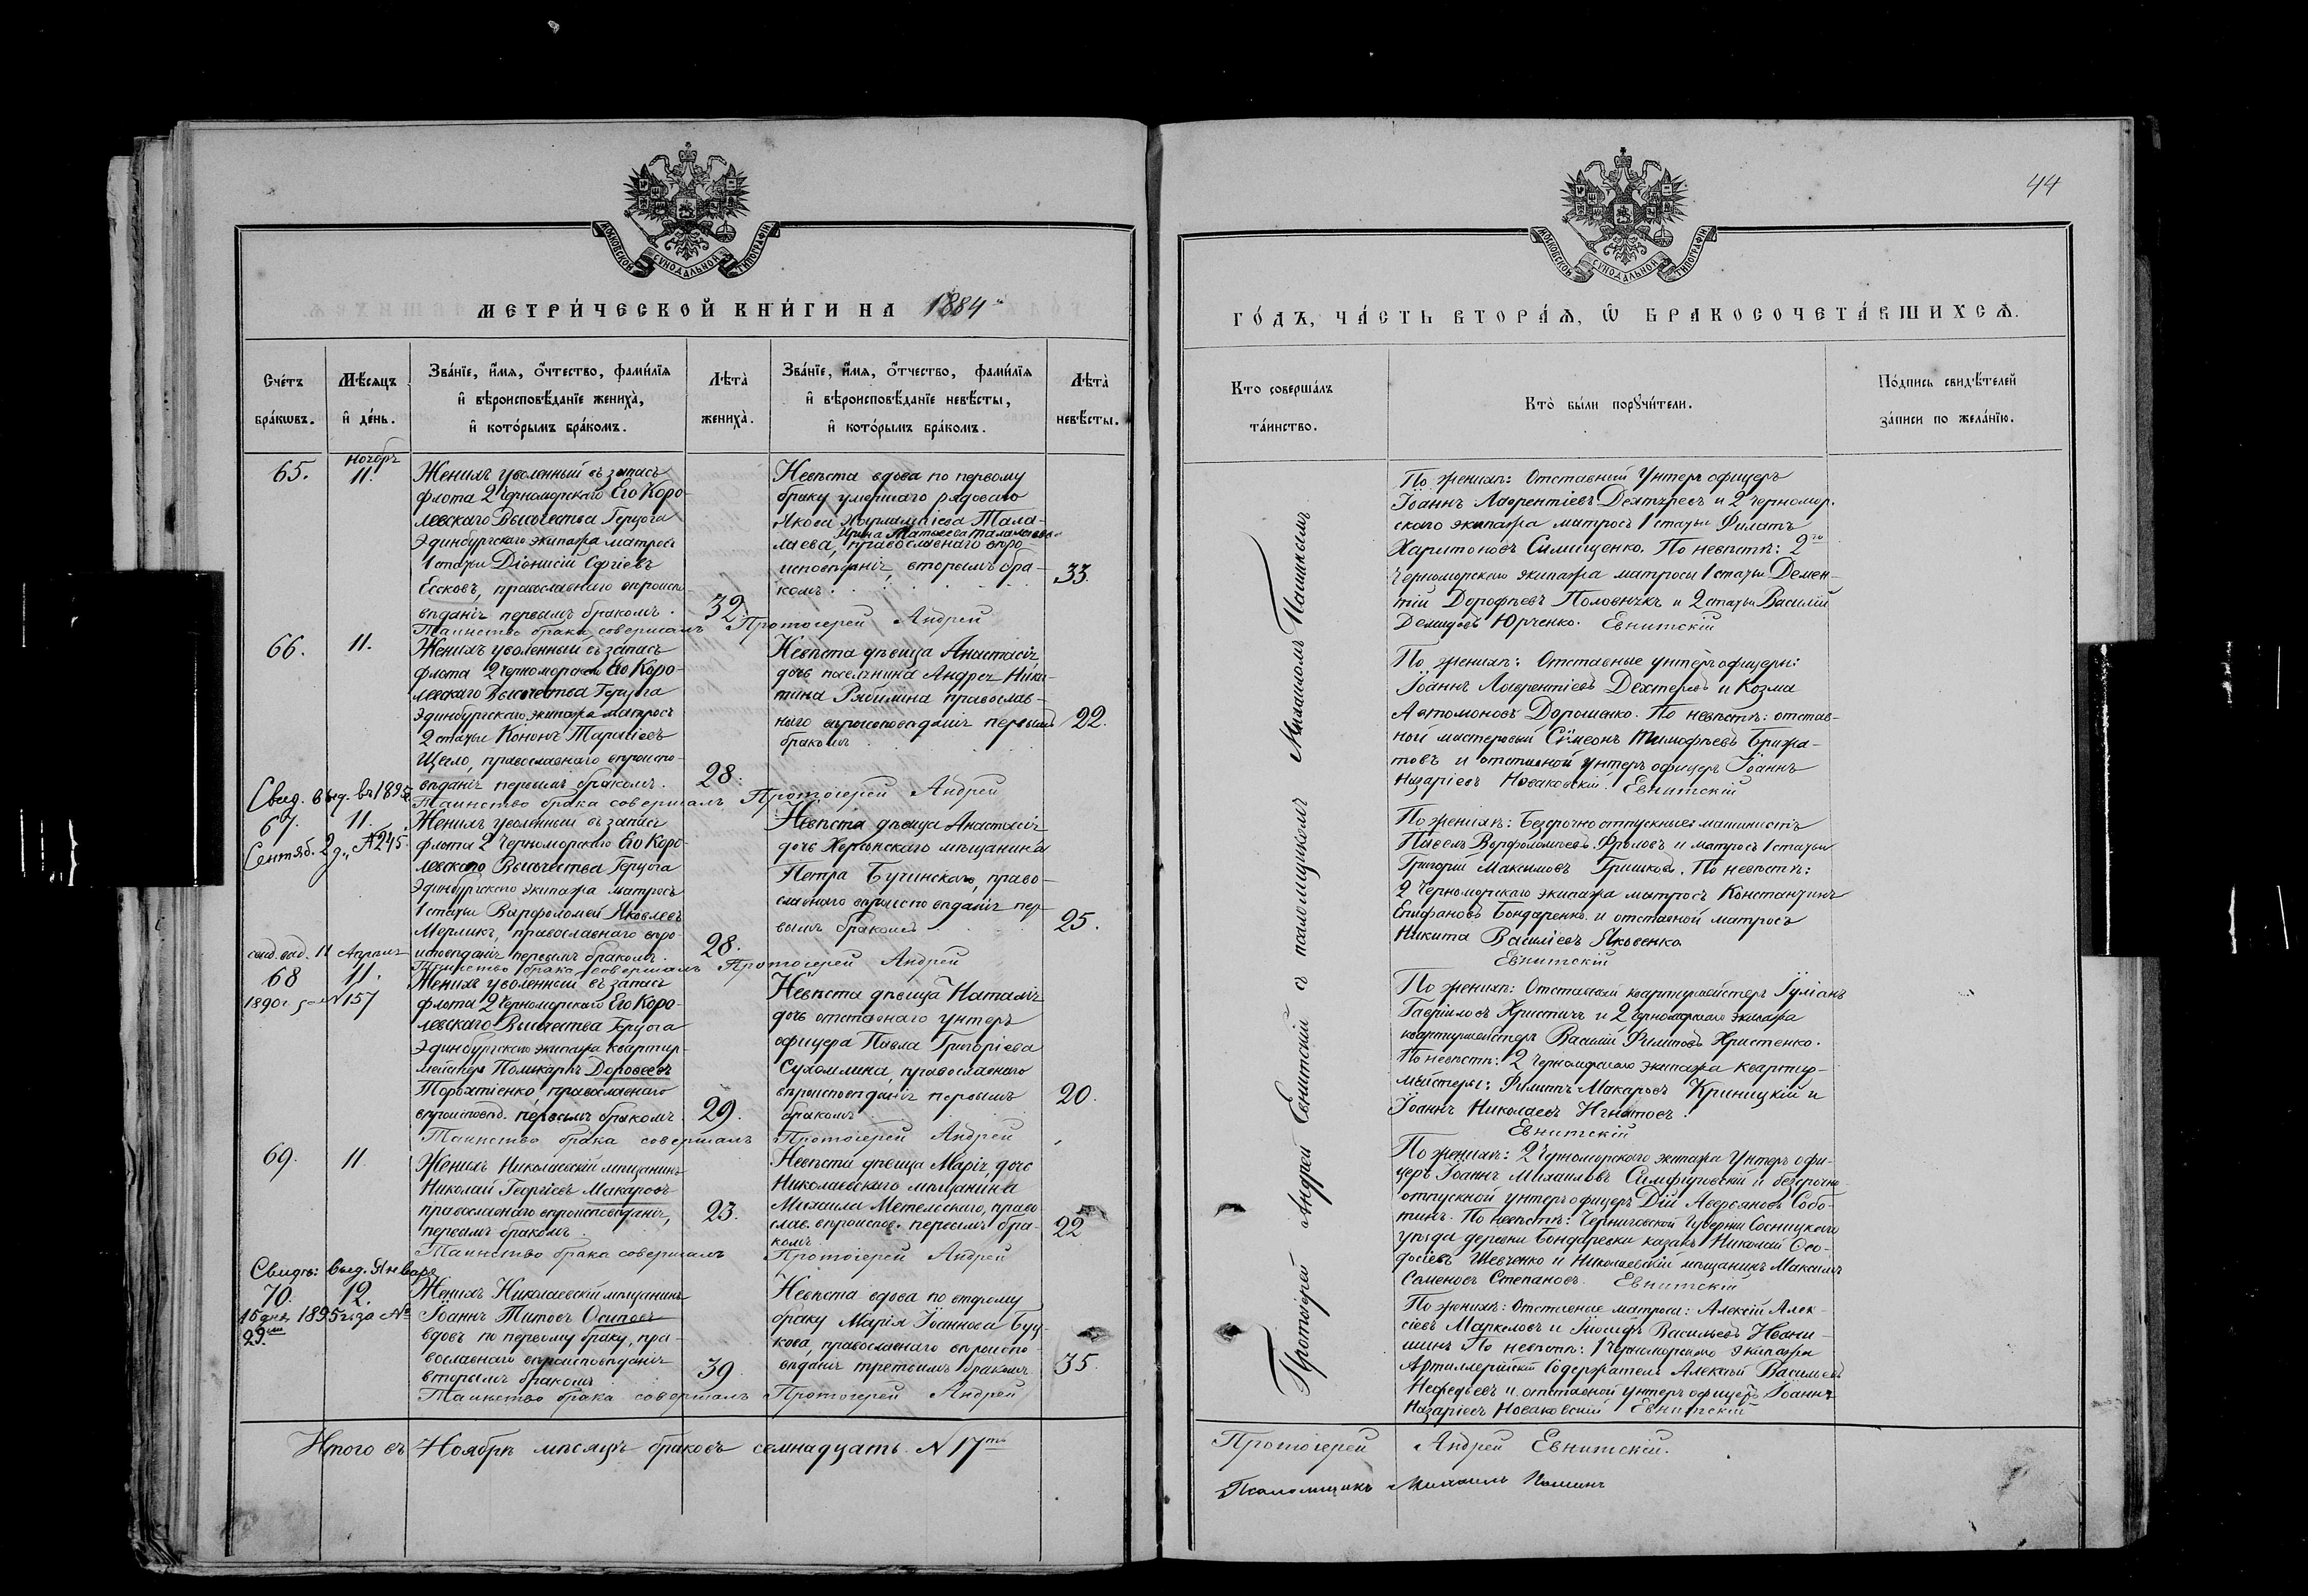 МОСКОВСКОЙ СУНОДАЛЬНОЙ ТИПОГРАФІИ
МЕТРИ́ЧЕСКОЙ КНИ́ГИ НА 1884й
Сче́тъ бра́кѡвъ.
Мѣ́сяцъ и҆ де́нь.
Зва́нїе, и҆́мя, о҆́тчество, фами́лїя
и҆ вѣроисповѣ́данїе жениха̀,
и҆ кото́рымъ бра́комъ.
Лѣта̀ жениха̀.
Зва́нїе, и҆́мя, о҆́тчество, фами́лїя
и҆ вѣроисповѣ́данїе невѣ́сты,
и҆ кото́рымъ бра́комъ.
Лѣта̀ невѣ́сты.
65.
Ноябрь
11.
Женихъ уволенный въ запасъ
флота 2 Черноморскаго Его Коро-
левскаго Высочества Герцога
Эдинбургскаго экипажа матросъ
1 статьи Діонисій Сергіевъ
Есковъ, православнаго вѣроиспо-
вѣданія первымъ бракомъ.
32.
Невѣста вдова по первому
браку умершаго рядоваго
Якова Харлампіева Тала-
Ирина Матвеева Талалаева
лаева, православнаго вѣро
исповѣданія, вторымъ бра-
комъ.
33.
Таинство брака совершалъ Протоіерей Андрей
66.
11.
Женихъ уволенный въ запасъ
флота 2 Черноморскаго Его Коро-
левскаго Высочества Герцога
Эдинбургскаго экипажа матросъ
2 статьи Кононъ Тарасіевъ
Щегло, православнаго вѣроиспо-
вѣданія первымъ бракомъ.
28.
Невѣста дѣвица Анастасія
дочь поселянина Андрея Ники-
тина Рябинина православ-
наго вѣроисповѣданія первымъ
бракомъ
22.
Таинство брака совершалъ Протоіерей Андрей
Свид. выд. въ 1895
67.
11.
Сентяб. 2 д., № 245
Женихъ уволенный въ запасъ
флота 2 Черноморскаго Его Коро-
левскаго Высочества Герцога
Эдинбургскаго экипажа матросъ
1 статьи Варфоломей Яковлевъ
Мерликъ, православнаго вѣро-
исповѣданія первымъ бракомъ.
28.
Невѣста дѣвица Анастасія
дочь Херсонскаго мѣщанина
Петра Бучинскаго, право-
славнаго вѣроисповѣданія пер-
вымъ бракомъ
25.
Таинство брака совершалъ Протоіерей Андрей
свид. выд. 11 Апрѣля
68
11.
1890 г. № 157
Женихъ уволенный въ запасъ
флота 2 Черноморскаго Его Коро-
левскаго Высочества Герцога
Эдинбургскаго экипажа квартир-
мейстеръ Поликарпъ Доровеевъ
православнаго
вѣроисповѣд. первымъ бракомъ.
29.
Невѣста дѣвица Наталія
дочь отставнаго унтеръ
офицера Павла Григоріева
Сухомлина, православнаго
вѣроисповѣданія первымъ
бракомъ.
20.
Таинство брака совершалъ Протоіерей Андрей
69.
11.
Женихъ Николаевскій мѣщанинъ
Николай Георгіевъ Макаровъ
православнаго вѣроисповѣданія,
первымъ бракомъ.
23.
Невѣста дѣвица Марія, дочь
Николаевскаго мѣщанина
Михаила Метельскаго, право
слав. вѣроиспов. первымъ бра-
комъ
22
Таинство брака совершалъ Протоіерей Андрей
Свидѣ: выд. Января
70.
12.
15 дня 1895 г. за №
29.
Женихъ Николаевскій мѣщанинъ
Іоаннъ Титовъ Осиповъ
вдовъ по первому браку, пра-
вославнаго вѣроисповѣданія
вторымъ бракомъ.
39
Невѣста вдова по второму
браку Марія Іоаннова Буц-
кова, православнаго вѣроиспо-
вѣданія третьимъ бракомъ
35.
Таинство брака совершалъ Протоіерей Андрей
Итого въ Ноябрѣ мѣсяцѣ браковъ семнадцать N 17ть
44
МОСКОВСКОЙ СУНОДАЛЬНОЙ ТИПОГРАФІИ
ГО́ДЪ, ЧА́СТЬ ВТОРА́Ѧ, Ѡ҆ БРАКОСОЧЕТА́ВШИХСѦ.
Кто соверша́лъ та́инство.
Кто̀ бы́ли порꙋчи́тели.
По́дпись свидѣ́телей
за́писи по жела́нїю.
Протоіерей Андрей Евнитскій съ псаломщикомъ Михаиломъ Пашинымъ
По женихѣ: Отставный Унтеръ офицеръ
Іоаннъ Лаврентіевъ Дехтеревъ и 2 Черномор-
скаго экипажа матросъ 1 статьи Филатъ
Харитоновъ Симищенко. По невѣстѣ: 2го
Черноморскаго экипажа матросы 1 статьи Демен-
тій Дорофѣевъ Половнякъ и 2 статьи Василій
Демидовъ Юрченко. Евнитскій
По женихѣ: Отставные унтеръ офицеры:
Іоаннъ Лаврентіевъ Дехтеревъ и Козма
Автомоновъ Дорошенко. По невѣстѣ: отстав-
ной мастеровый Сѵмеонъ Тимофѣевъ Брижа-
товъ и отставной унтеръ офицеръ Іоаннъ
Назаріевъ Новаковскій. Евнитскій
По женихѣ: Безсрочно отпускные: машинистъ
Павелъ Варфоломѣевъ Фроловъ и матросъ 1 статьи
Григорій Максимовъ Гришковъ. По невѣстѣ:
2 Черноморскаго экипажа матросъ Константинъ
Епифановъ Бондаренко и отставной матросъ
Никита Василіевъ Яковенко
Евнитскій
По женихѣ: Отставный квартирмейстеръ Іуліанъ
Гавриловъ Христичъ и 2 Черноморскаго экипажа
квартирмейстеръ Василій Филиповъ Христенко.
По невѣстѣ: 2 Черноморскаго экипажа квартир-
мейстеры: Филиппъ Макарьевъ Криницкій и
Іоаннъ Николаевъ Игнатовъ.
Евнитскій
По женихѣ: 2 Черноморскаго экипажа Унтеръ офи-
церъ Іоаннъ Михаиловъ Симфировскій и безсрочно-
отпускной унтеръ офицеръ Дій Аверьяновъ Собо-
тинъ. По невѣстѣ: Черниговской Губерніи Сосницкаго
уѣзда деревни Бондаревки казакъ Николай Ѳео-
досіевъ Шевченко и Николаевскій мѣщанинъ Максимъ
Семеновъ Степановъ. Евнитскій
По женихѣ: Отставные матросы: Алексій Алек-
сіевъ Маркеловъ и Іосифъ Васильевъ Ивани-
шинъ По невѣстѣ: 1 Черноморскаго экипажа
Артиллерійскій Содержатель Алексѣй Васильевъ
Нефедьевъ и отставной унтеръ офицеръ Іоаннъ
Назаріевъ Новаковскій Евнитскій
Протоіерей Андрей Евнитскій.
Псаломщикъ Михаилъ Пашинъ